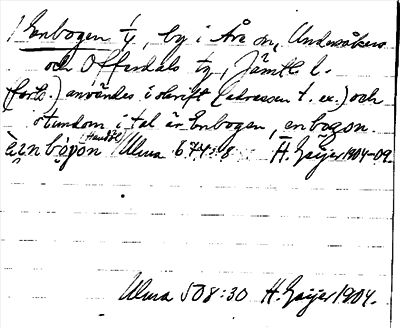 Enbogen ty, by i Åre sn, Undersåkers
och Offerdals tg, Jämtl. l.
(forts.) användes i skrift (adressen t. ex.) och
stundom i tal är Enbogen, enbogon.
(Handöl)
Ulma 674:8 H. Geijer 1904-09
Ulma 508:30 H. Geijer 1904.